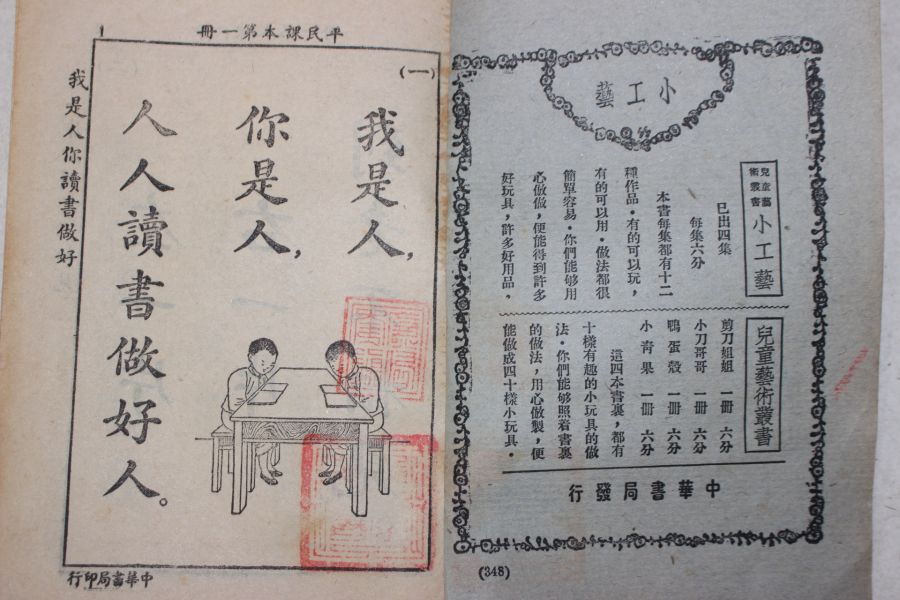 小工藝
兒童藝術叢書
小工藝
已出四集
每集六分
本書每集都有十二
種作品・有的可以玩，
有的可以用・做法都很
簡單容易・你們能够用
心做做，便能得到許多
好玩具，許多好用品，
兒童藝術叢書
剪刀姐姐 一冊 六分
小刀哥哥 一冊 六分
鴨蛋殼 一冊 六分
小青果 一冊 六分
這四本書裏，都有
十樣有趣的小玩具的做
法・你們能够照着書裏
的做法，用心做製，便
能做成四十樣小玩具・
中華書局發行
(348)
平民課本第一冊
1
(一)
我是人，
你是人，
人人讀書做好人。
我是人你讀書做好
中華書局印行